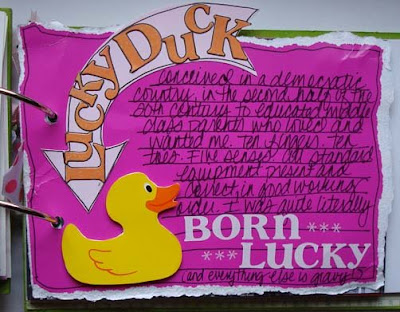 Lucky Duck
conceived in a democratic
country in the second half of the
20th century to educated middle
class parents who loved and
wanted me. ten fingers. ten
toes. Five senses. all standard
equipment present and
correct, in good working
order. I was quite literally
BORN ***
*** LUCKY
(and everything else is gravy!)